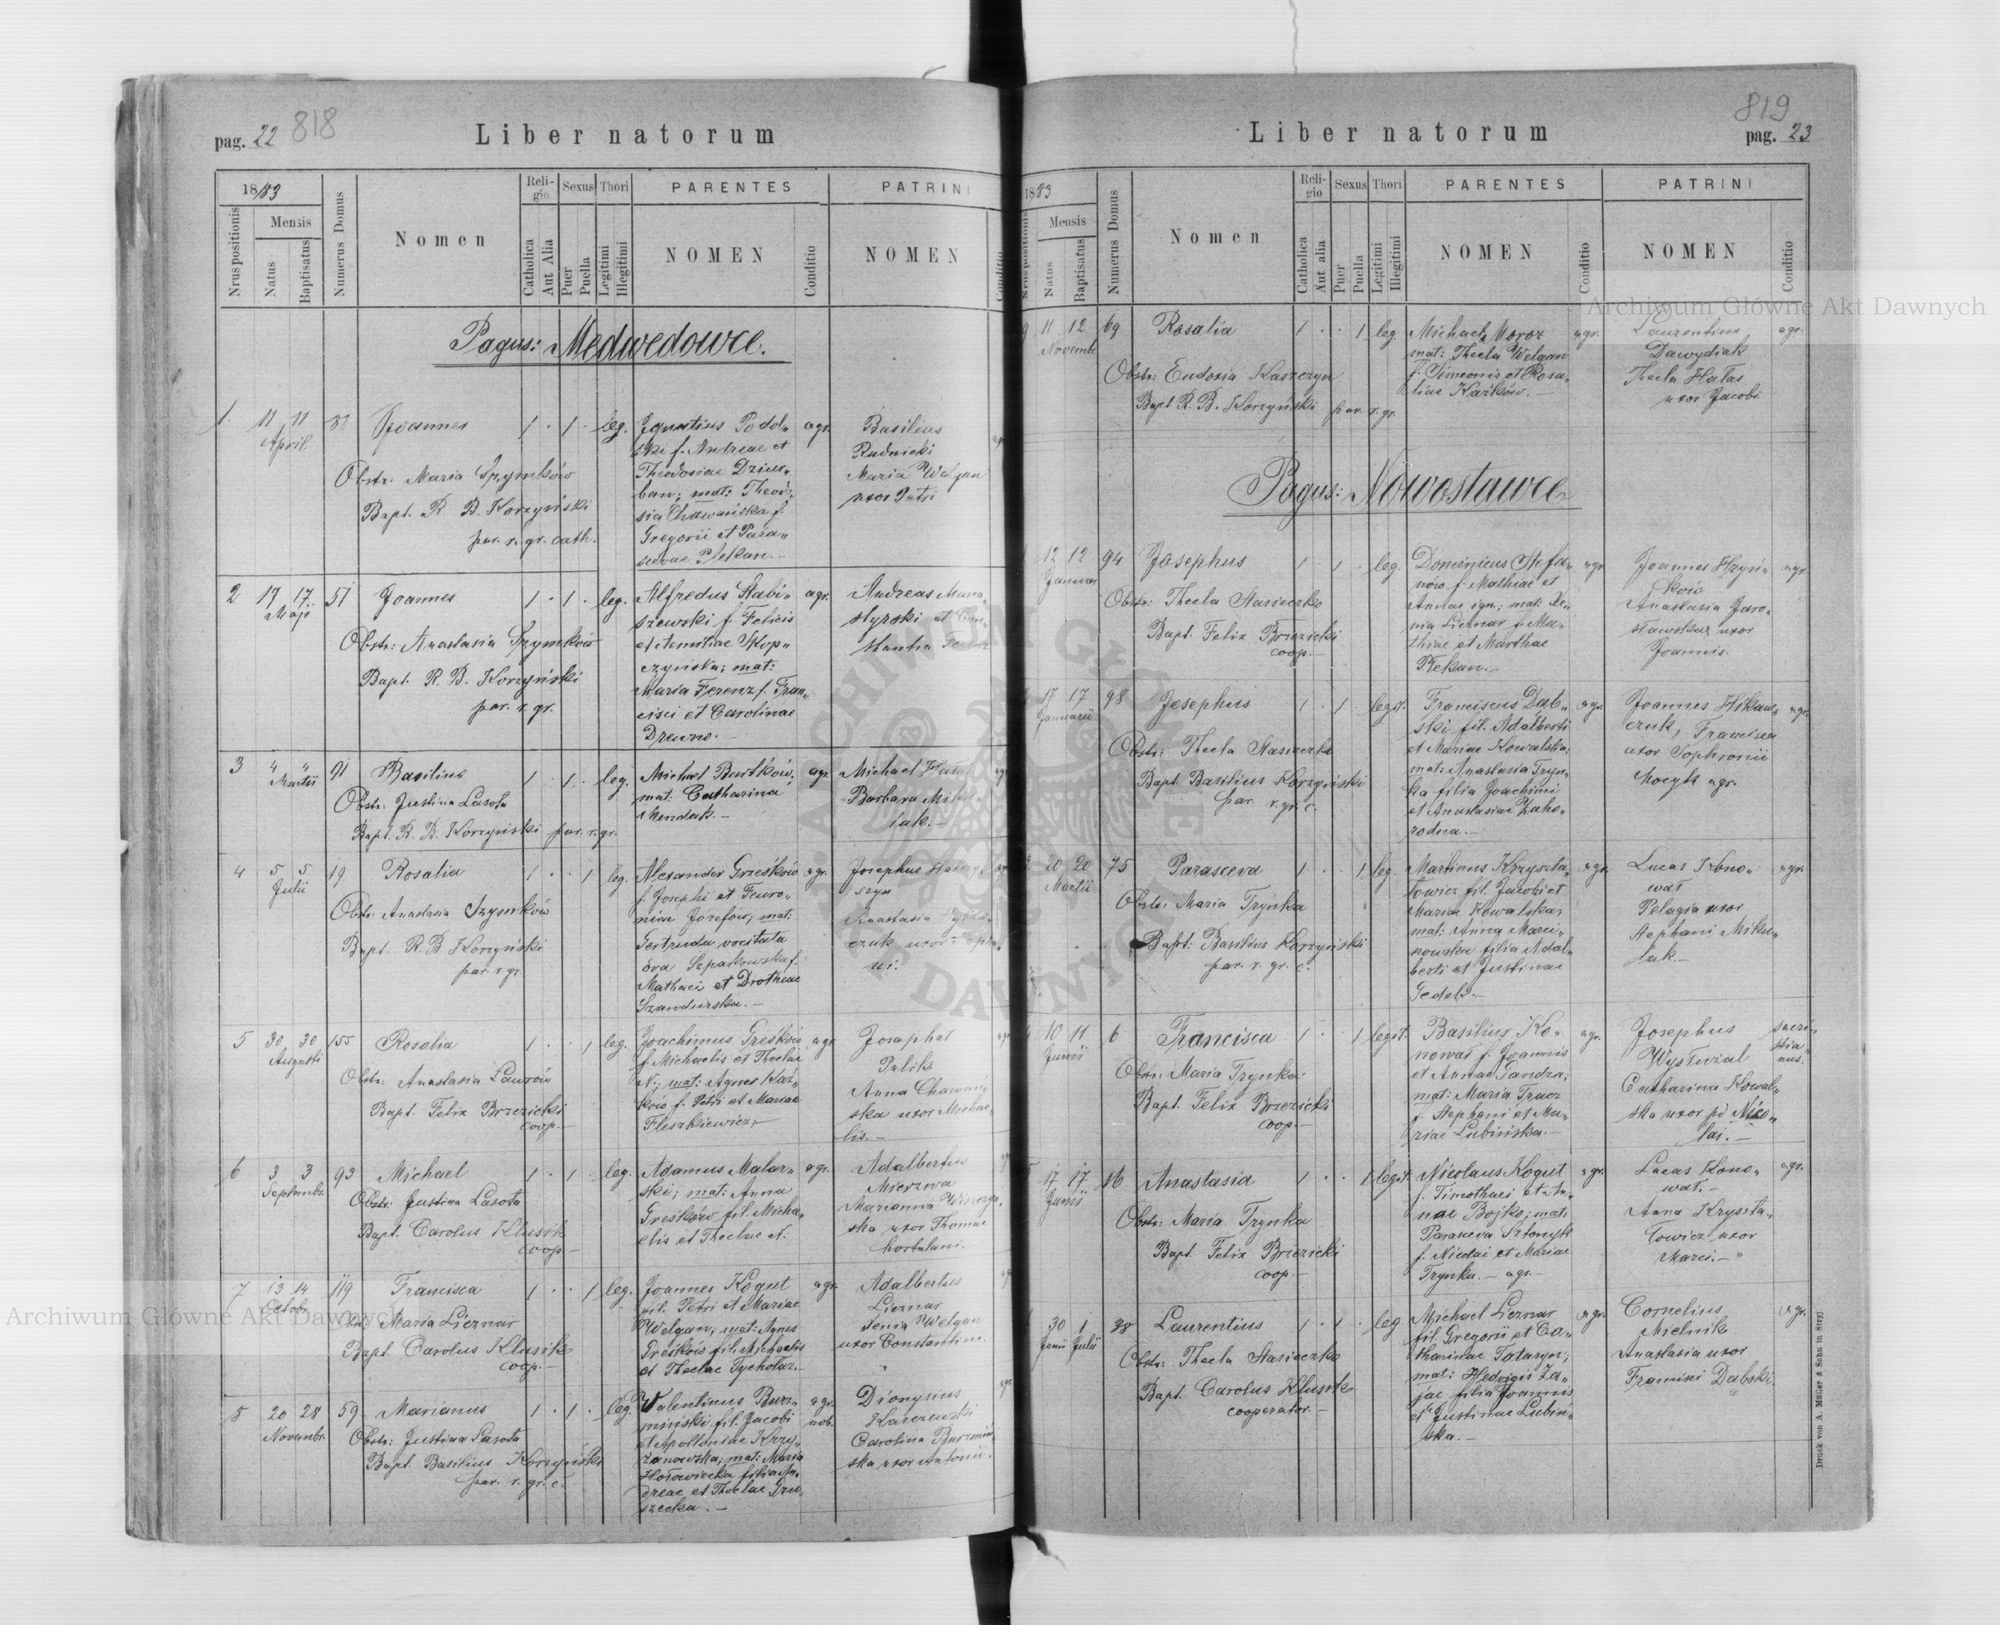 pag. 22 818
Liber natorum
1883
Nrus positionis
Mensis
Natus
Baptisatus
Numerus Domus
Nomen
Religio
Catholica
Aut Alia
Sexus
Puer
Puella
Thori
Legitimi
Illegitimi
PARENTES
NOMEN
Conditio
PATRINI
NOMEN
Conditio
Pagus: Medwedowce.
1. 11 11 April. Joannes 1 · 1 · leg.
Obstr: Maria Szymków
Bapt. R. B. Korzyński
par. r. gr. cath.
Ignatius Podol-
ski f. Andreae et
Theodosiae Dziur-
ban; mat: Theodo-
Gregorii et Para-
scevae Plekan.
agr.
Basilius
Rudnicki
Maria Welgan
uxor Petri
2 17 17 Maji 51 Joannes 1 · 1 · leg.
Obstr: Anastasia Szymków
Bapt. R. B. Korzyński
par. r. gr.
Alfredus Stabi-
szewski f. Felicis
et Aemiliae Skop-
czyńska; mat:
Maria Ferenz f. Fran-
cisci et Carolinae
Drewno.
agr.
Andreas Mona-
styrski et Con-
stantia
3 4 4 Martii 91 Basilius 1 · 1 · leg.
Obstr: Justina Lasota
Bapt. R. B. Korzyński par. r. gr.
Michael Burtków,
mat: Catharina
Mendak.
agr.
Michael
Barbara
lak.
4 5 5 Julii 19 Rosalia 1 · · 1 leg.
Obstr: Anastasia Szymków
Bapt. R. B. Korzyński
par. r. gr.
Alexander Greśków
f. Josephi et Fewro-
niae Józefów; mat:
Gertruda vocitata
Ewa Szpakowska f.
Mathaei et Drotheae
Szandurska.
agr.
Josephus
szyn
Anastasia
czuk uxor
5 30 30 Augusti 155 Rosalia 1 · · 1 leg.
Obstr: Anastasia Lawrów
Bapt. Felix Brzezicki
coop.
Joachimus Greśków
f. Michaelis et Theclae
N.; mat: Agnes Kaź-
ków f. Petri et Mariae
Fleszkiewicz.
agr.
Josaphat
Palik
Anna Chawań-
ska uxor Michae-
lis.
6 3 3 Septembr. 93 Michael 1 · 1 · leg.
Obstr: Justina Lasota
Bapt. Carolus Klusik
coop.
Adamus Malar-
ski; mat: Anna
Greśków fil. Micha-
elis et Theclae N.
agr.
Adalbertus
Mierzwa
Marianna
ska uxor Thomae
hortulani.
7 13 14 Octob. 119 Francisca 1 · · 1 leg.
Obst. Maria Liernar
Bapt. Carolus Klusik
coop.
Joannes Kogut
fil. Petri et Mariae
Welgan; mat: Agnes
Greśków fil. Michaelis
et Theclae Tycholaz.
agr.
Adalbertus
Liernar
Xenia Welgan
uxor Constantini.
8 20 28 Novembr. 59 Marianus 1 · 1 · leg.
Obstr: Justina Lasota
Bapt. Basilius Korzyński
par. r. gr. c.
Valentinus Burz-
miński fil. Jacobi
et Apolloniae Krzy-
żanowska; mat: Maria
Hołowiecka filia An-
dreae et Theclae Gru-
szecka.
agr. nob.
Dionysius
Karczewski
Carolina Burzmiń-
ska uxor Antonii.
819
Liber natorum
pag. 23
1883
Nrus positionis
Mensis
Natus
Baptisatus
Numerus Domus
Nomen
Religio
Catholica
Aut alia
Sexus
Puer
Puella
Thori
Legitimi
Illegitimi
PARENTES
NOMEN
Conditio
PATRINI
NOMEN
Conditio
9 11 12 Novembr. 69 Rosalia 1 · · 1 leg.
Obstr: Eudoxia Kaszczyn
Bapt R. B. Korzyński par. r. gr.
Michael Moroz
mat: Thecla Welgan
f. Simeonis et Rosa-
liae Kaźków.
agr.
Laurentius
Dawydiak
Thecla Hałas
uxor Jacobi
agr.
Pagus: Nowostawce
12 12 Januar. 94 Josephus 1 · 1 · leg.
Obstr: Thecla Stasieczko
Bapt. Felix Brzezicki
coop.
Dominicus Stefa-
nów f. Mathiae et
Annae ign.; mat: Xe-
nia Liernar f. Ma-
thiae et Marthae
Plekan.
agr.
Joannes
Anastasia Jaro-
sławska uxor
Joannis.
agr.
17 17 Januarii 98 Josephus 1 · 1 · legit.
Obstr: Thecla Stasieczko
Bapt Basilius Korzyński
par. r. gr. c.
Franciscus Dąb-
ski fil. Adalberti
et Mariae Kowalska;
mat: Anastasia Tryn-
ka filia Joachimi
et Anastasiae Zaho-
rodna.
agr.
Joannes Hikaw-
czuk, Francisca
uxor Sophronii
Mocyk agr.
agr.
20 20 Martii 75 Parasceva 1 · · 1 leg.
Obstr: Maria Trynka
Bapt: Basilius Korzyński
par. r. gr. c.
Martinus Krzyszta-
łowicz fil. Jacobi et
Mariae Kowalska;
mat: Anna Marci-
nowska filia Adal-
berti et Justinae
Gedele.
agr.
Lucas Kono-
wał
Pelagia uxor
Stephani Miku-
lak
agr.
4 10 11 Junii 6 Francisca 1 · · 1 legit.
Obstr: Maria Trynka
Bapt. Felix Brzezicki
coop.
Basilius Ko-
nował f. Joannis
et Annae Landra;
mat: Maria Tracz
f. Stephani et Ma-
riae Lubińska.
agr.
Josephus
Wystwial
Catharina Kowal-
ska uxor pd Nico-
lai.
sacri-
stia-
nus.
5 17 17 Junii 16 Anastasia 1 · · 1 legit.
Obstr: Maria Trynka
Bapt. Felix Brzezicki
coop.
Nicolaus Kogut
f. Timothaei et An-
nae Bojko; mat:
Parasceva Sztonyk
f. Nicolai et Mariae
Trynka. agr.
agr.
Lucas Kono-
wał.
Anna Kryszta-
łowicz uxor
Marci.
agr.
30 1 Junii Julii 38 Laurentius 1 · 1 · leg
Obstr: Thecla Stasieczko
Bapt. Carolus Klusik
cooperator.
Michael Liernar
fil. Gregorii et Ca-
tharinae Tataryn;
mat: Hedvigis Za-
jac filia Joannis
et Justinae Lubiń-
ska.
agr.
Cornelius
Mielnik
Anastasia uxor
Francisci Dąbski
agr.
Druck von A. Müller & Sohn in Stryj.
Archiwum Główne Akt Dawnych
Archiwum Główne Akt Dawnych
ARCHIWUM GŁÓWNE AKT DAWNYCH